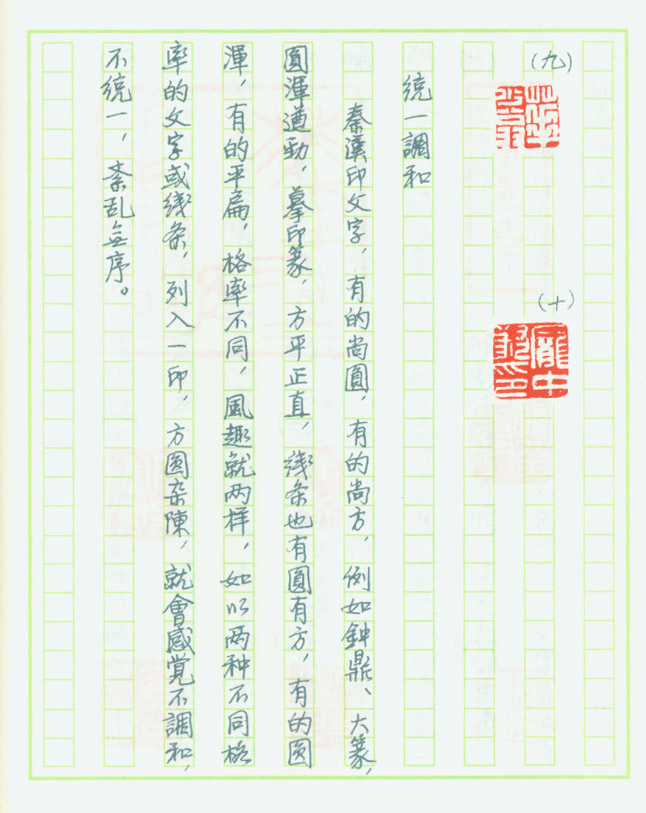 (九)
(十)
統一調和
秦漢印文字，有的尚圓，有的尚方，例如鈡鼎、大篆，
圓渾遒勁，摹印篆，方平正直，綫条也有圓有方，有的圆
渾，有的平扁，格率不同，風趣就两樣，如以两种不同格
率的文字或綫条，列入一印，方圆杂陳，就會感觉不調和，
不統一，紊乱無序。